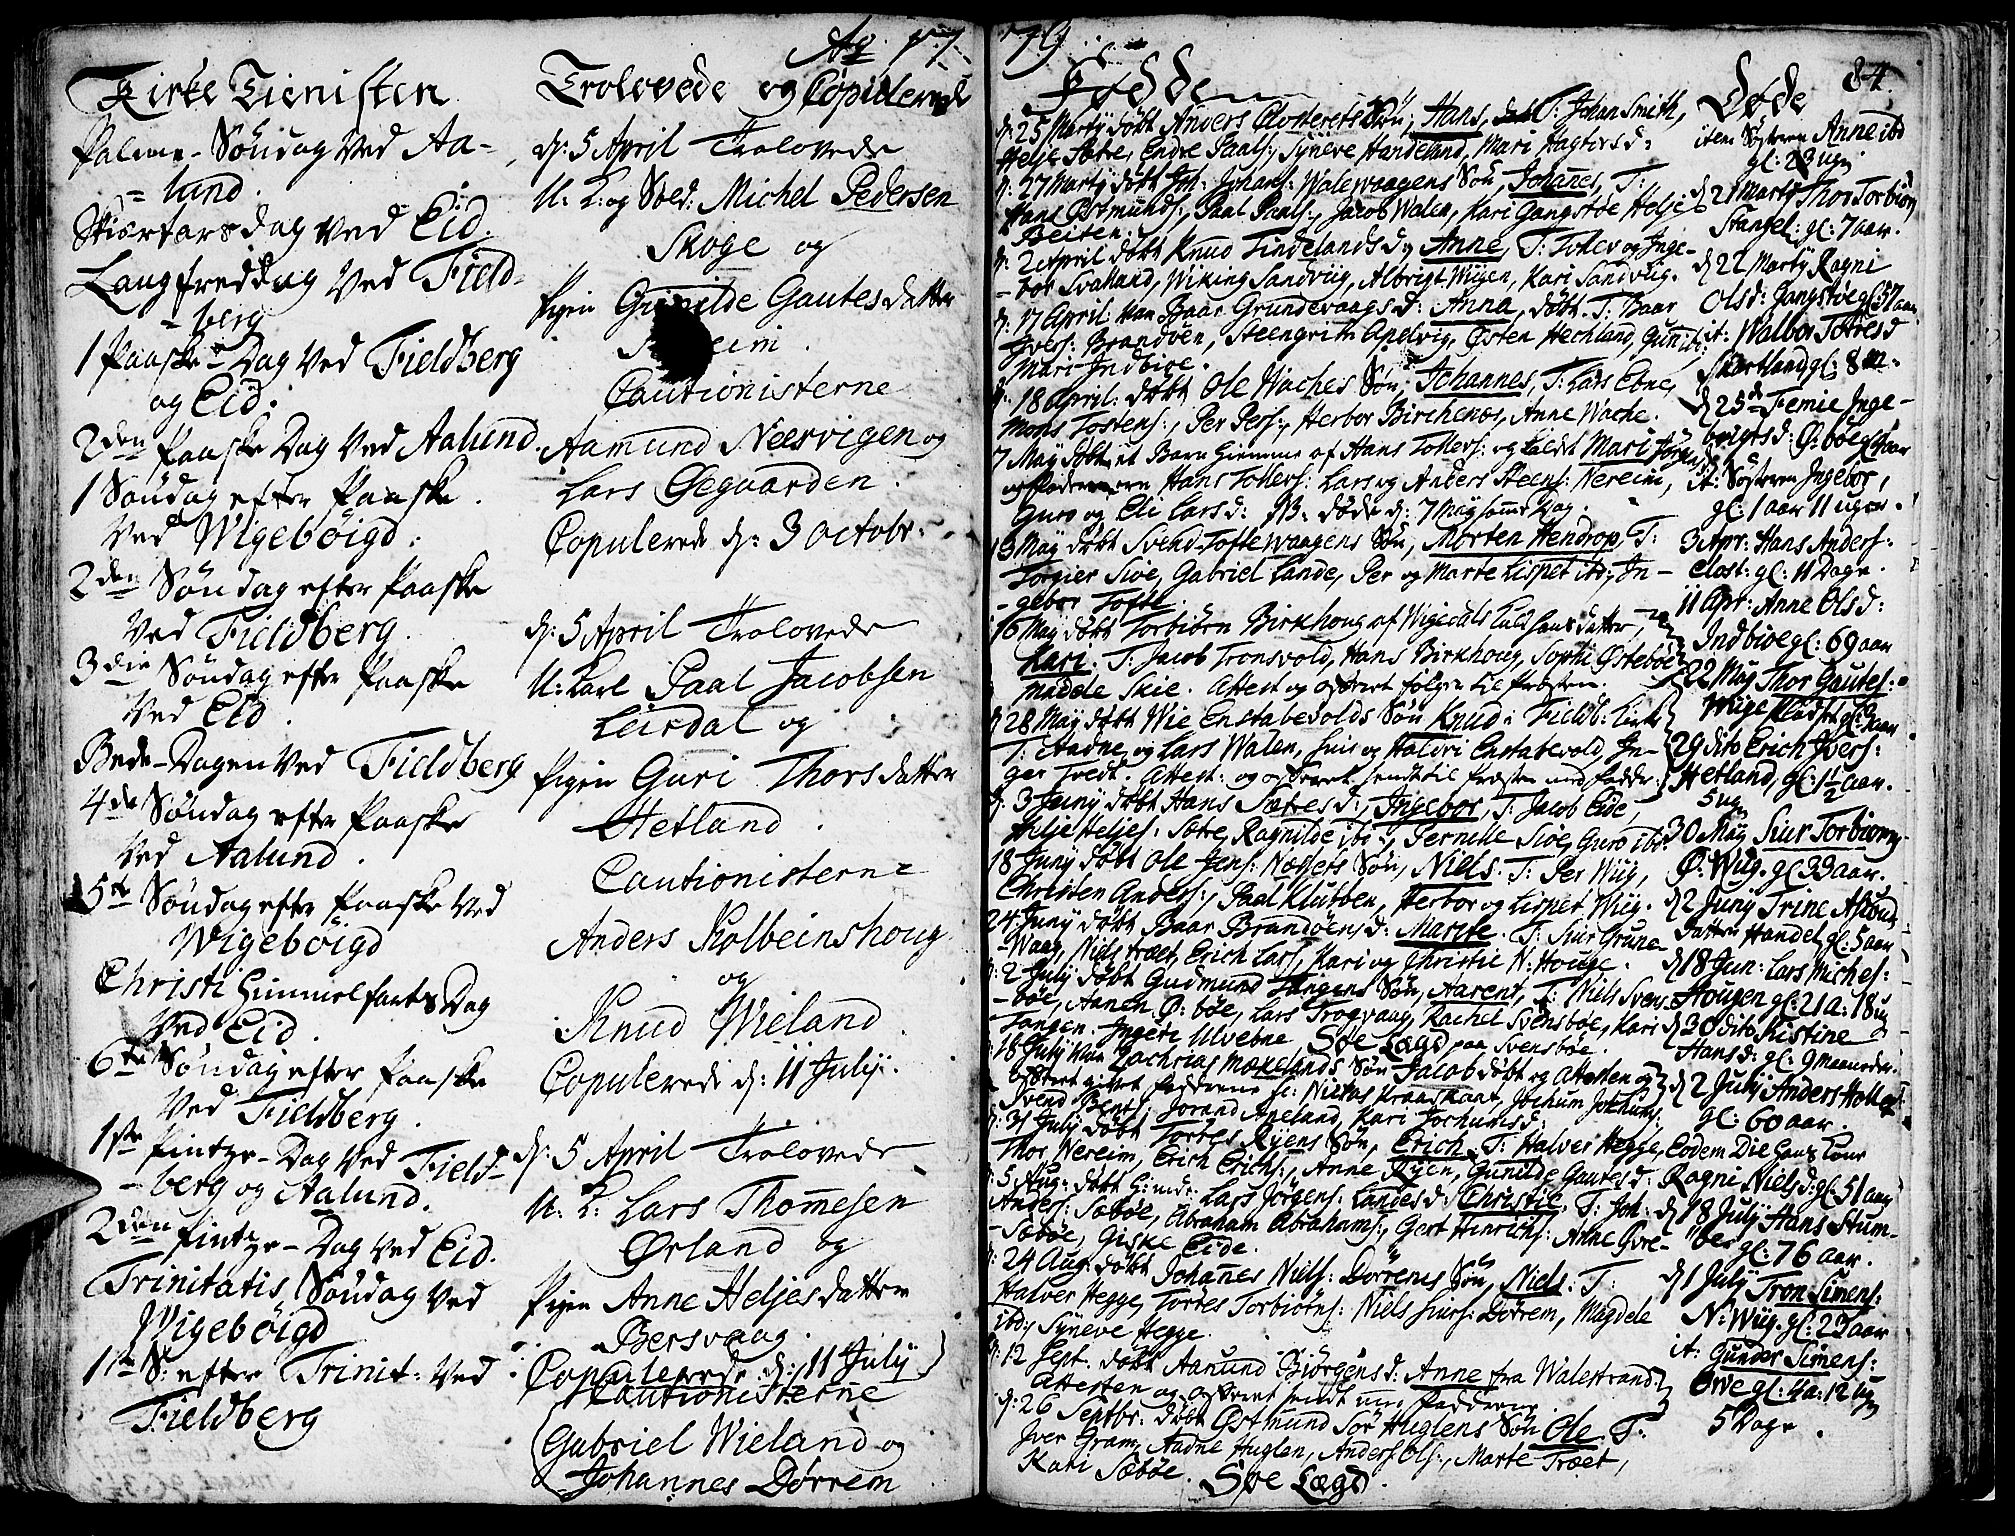 Ao 17
Kirke Tienisten
Palme-Söndag Ved Aa-
= lund.
Skiertorsdag Ved Eid.
Langfreddag Ved Field-
= berg
1 Paaske-Dag Ved Fieldberg
og Eid.
2den Paaske Dag Ved Aalund.
1 Søndag efter Paaske
Ved Wigebøigd.
2den Søndag efter Paaske
Ved Fieldberg.
3die Søndag efter Paaske
Ved Eid.
Bede-Dagen Ved Fieldberg
4de Søndag efter Paaske
Ved Aalund.
5te Søndag efter Paaske Ved
Wigebøigd
Christi Himmelfarts Dag
Ved Eid.
6te Søndag efter Paaske
Ved Fieldberg.
1ste Pintze-Dag Ved Field-
- berg og Aalund.
2den Pintze-Dag Ved Eid.
Trinitatis Søndag Ved
Wigebøigd
1ste S: efter Trinit: Ved
Fieldberg
Trolovede og Copulerede
d: 5 April Trolovede
U: K: og Sold: Michel Pedersen
Skoge og
Pigen Gunilde Gautesdatter
Cautionisterne
Aamund Neervigen og
Lars Øegaarden.
Copulerede d: 3 Octobr:
d: 5 April Trolovede
U: Karl Paal Jacobsen
Leirdal og
Pigen Guri Thorsdatter
Hetland.
Cautionisterne
Anders Kolbeinshoug
og
Knud Wieland.
Copulerede d: 11 July.
d: 5 April Trolovede
U: K: Lars Thomesen
Ørland og
Pigen Anne Heljesdatter
Bersvaag.
Copulerede d: 11 July
Cautionisterne
Gabriel Wieland og
Johannes Dörrem
79
Fødde
d: 25 Marty døbt Anders Closterets Søn, Hans, T: Johan Smith,
Helje Sætre, Endre Paals:, Syneve Handeland, Mari Hagtorsd:
d: 27 Marty døbt Joh: Johans: Walewaagens Søn, Johannes, T:
Hans Østmunds:, Paal Paals:, Jacob Walen, Kari Gangstøe, Helje
Beiten.
d: 2 April døbt Knud Tindelands d: Anne, T: Tollev og Inge-
- bor Svalland, Wiking Sandviig, Albrigt Wiigen, Kari Sandviig.
d: 17 April: Baar Grundevaags d: Anna, døbt. T: Baar
Ivers: Brandøen, Steengrim Apelvig, Østen Hechland, Guni ibd:
Mari Indbioe.
d: 18 April: døbt Ole Waches Søn, Johannes, T: Lars Ebne,
Mons Tostens:, Per Pers:, Herbor Birchenæs, Anne Wache.
7 May døbt et Barn Hiemme af Hans Tollevs: og kaldet Mari Jørgens
og Fadderne ere Hans Tollevs: Lars og Anders Steens: Nereim,
Guro og Eli Larsd: NB: døde d: 7 May samme Dag.
13 May døbt Svend Toftewaagens Søn, Morten Hendrop, T:
Torgier Sioe, Gabriel Lande, Per og Marte Lispet ibd:, In-
- gebor Tofte.
16 May døbt Torbiörn Birkhoug af Wigedals datter,
Kari. T: Jacob Tronsvold, Hans Birkhoug, Sophi Østebøe
Madde Skie. Attest og offeret følger til Præsten.
d: 28 May døbt Wie Enstabevolds Søn Knud i Fieldb: Kirke
T: Aadne og Lars Walen, Siur og Haldri Enstabevold, In-
ger Tvedt. Attest: og offeret sendt til Præsten med Fadder:
d: 3 Juny døbt Hans Sætres d:, Ingebor, T: Jacob Eide,
Helje Heljes: Sætre, Ragnilde ibd:, Pernille Sioe, Guro ibd:
18 Juny døbt Ole Jens: Næssets Søn, Niels. T: Per Wiig,
Christen Anders:, Paal Klubben, Herbor og Lispet Wiig.
24 Juny døbt Baar Brandøens d: Marite. T: Siur Grune-
Waag, Niels Træet, Erich Lars:, Kari og Christie N: Houge.
d: 2 July døbt Gudmund Tangens Søn, Aarent, T: Niels Svens-
- bøe, Aanen Ø: bøe, Lars Trogvaag, Rachel Svensbøe, Kari
Tangen. Ingeri Ulvebne Søe Lægd paa Svensbøe.
18 July Zachrias Mokelands Søn Jacob døbt og Attesten og
offeret givet Fadderne sc: Niklas Kraaskant, Jochum Jochums:
Svend Bent:, Jorand Apeland, Kari Jochumsd:
d: 31 July døbt Torres Ryens Søn, Erich. T: Halver Hegge,
Thor Nereim, Erich Erichs:, Anne Øyen, Gunilde Gautesd:
d: 5 Aug: døbt Lars Jörgens: Landes d: Christie, T: Joh:
Anders: Sæbøe, Abraham Abrahams:, Gert Hinrichs: Anne Øvre-
- Sæbøe, Giske Eide.
d: 24 Aug: døbt Johannes Niels: Dörrems Søn, Niels: T:
Halver Hegge, Torres Torbiörns: Niels Siurs: Dörrem, Magdele
ibd:, Syneve Hegge.
d: 12 Sept: døbt Aanund Biörgens d: Anne fra Walestrand.
Attesten og offeret sendt med Fadderne.
d: 26 Septbr: døbt Østmund Sör Huglens Søn Ole. T:
Iver Gram, Aadne Huglen, Anders Ols:, Marte Træet,
Kari Sæbøe. Søe Lægd.
Døde 84
item Søsteren Anne ibd
gl: 23 uger.
d 21 Marty Thor Torbiörn
Stangel: gl: 7 aar.
d 22 Marty Ragni
Olsd: Gangstøe gl: 57 aar
it: Walbor Torresd
Skartland gl: 8 m.
d 25de Femie Inge-
brigtsd: Ø: bøe gl: aar
it: Søsteren Ingebor,
gl: 1 aar 11 uger.
3 Apr: Hans Anders:
Clost: gl: 11 Dage.
11 Apr: Anne Olsd:
Indbioe gl: 69 aar
22 May Thor Gautes:
Wiige gl: aar
29 dito Erich Ivers:
Hetland, gl: 1½ aar.
5 ug
30 May Siur Torbiörns
Ø: Wiig. gl 33 aar.
d 2 Juny Trine
Datter Handel gl: 5 aar
d 18 Jun: Lars Michels:
Hougen gl: 21 a: 18 u
d 30 dito Kistine
Hansd: gl: 9 maaneder.
d 2 July Anders Holleg
gl: 60 aar.
Eodem Die Hans Kone
Ragni Nielsd: gl: 51 aar
d 18 July Hans Stum-
ber gl: 76 aar.
d 1 July Tron Simens:
N: Wiig. gl: 20 aar
it: Gunder Simens:
Øwe gl: 4 a: 12 ug
5 Dage.